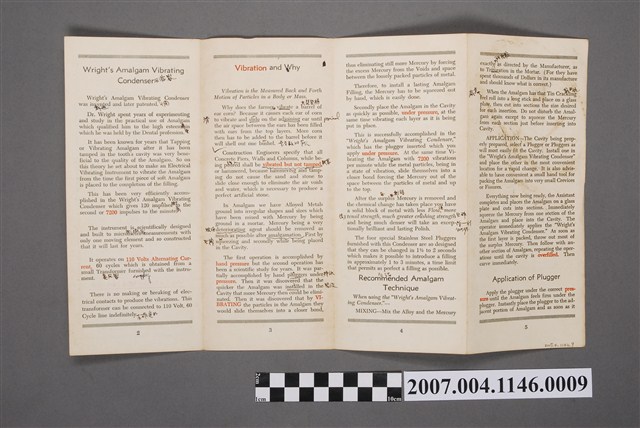 Wright's Amalgam Vibrating
Condenser
Wright's Amalgam Vibrating Condenser
was invented and later patented,
Dr. Wright spent years of experimenting
and study in the practical use of Amalgam
which qualified him to the high
which he was held by the Dental profession
It has been known for years that Tapping
or Vibrating Amalgam after it has been
tamped in the tooth's cavity was very bene-
ficial to the quality of the Amalgam. So on
this theory he set about to make an Electrical
Vibrating Instrument to vibrate the Amalgam
from the time the first piece of soft Amalgam
is placed to the completion of the filling.
This has been very efficiently accom-
plished in the Wright's Amalgam Vibrating
Condenser which gives 120 impulses to the
second or 7200 impulses to the minute.
The instrument is scientifically designed
and built to
only one moving element and so constructed
that it will last for years.
It operates on 110 Volts Alternating Cur-
rent 60 cycles which is obtained from a
small Transformer furnished with the instru-
ment.
There is no making or breaking of elec-
trical contacts to produce the vibrations. This
transformer can be connected to 110 Volt, 60
Cycle line indefinitely.
2
Vibration and Why
Vibration is the Measured Back and Forth
Motion of Particles in a Body or Mass.
Why does the farmer vibrate a barrel of
oat ears? Because it causes each ear of corn
to vibrate and slide on the adjoining ear until
the air space between the ears has been filled
with ears from the top layers. More corn
then has to be added to the barrel before it
will shell out one bushel.
Construction Engineers specify that all
Concrete Piers, Walls and Columns, while be-
ing poured shall be vibrated but not tamped
or hammered, because hammering and tamp-
ing do not cause the sand and stone to
slide close enough to eliminate the air voids
and water, which is necessary to produce a
perfect artificial stone.
In Amalgam we have Alloyed Metals
ground into irregular shapes and sizes which
have been mixed with Mercury by being
ground in a mortar. Mercury being a very
agent should be removed as
much as possible after amalgamation. First by
squeezing and secondly while being placed
in the Cavity.
The first operation is accomplished by
hand pressure but the second operation has
been a scientific study for years. It was par-
tially accomplished by hand pluggers under
pressure. Then it was discovered that the
quicker the Amalgam was installed in the
Cavity that more Mercury then could be elimi-
nated. Then it was discovered that by VI-
BRATING the particles in the Amalgam they
would slide themselves into a closer bond,
3
thus eliminating still more Mercury by forcing
the excess Mercury from the Voids and space
between the heavily packed particles of metal.
Therefore, to install a lasting Amalgam
Filling, the Mercury has to be squeezed out
by hand, which is easily done.
Secondly place the Amalgam in the Cavity
as quickly as possible, under pressure, at the
same time vibrating each layer as it is being
put in place.
This is successfully accomplished in the
"Wright's Amalgam Vibrating Condenser,"
which has the plugger inserted which you
apply under pressure. At the same time Vi-
brating the Amalgam with 7200 vibrations
per minute while the metal particles, being in
a state of vibration, slide themselves into a
closer bond forcing the Mercury out of the
space between the particles of metal and up
to the top.
After the surplus Mercury is removed and
the chemical change has taken place you have
a solid block of metal with less Flow, more
strength, much greater cohesing strength
and being much denser will take an excep-
tionally brilliant and lasting Polish.
The four special Stainless Steel Pluggers
furnished with this Condenser are so designed
that they can be changed in 1½ to 2 seconds
which makes it possible to introduce a filling
in approximately 1 to 2 minutes, a time limit
that permits as perfect a filling as possible.
Recommended Amalgam
Technique
When using the "Wright's Amalgam Vibrat-
ing Condenser."—
MIXING—Mix the Alloy and the Mercury
4
exactly as directed by the Manufacturer, as
to Trituration in the Mortar. (For they have
spent thousands of Dollars in its manufacture
and should know what is correct.)
When the Amalgam has that Tin
feel roll into a long stick and place on a glass
plate, then cut into sections the size desired
for each insertion. Do not disturb the Amal-
gam again except to squeeze the Mercury
from each section just before inserting into
Cavity.
APPLICATION—The Cavity being prop-
erly prepared, select a Plugger or Pluggers as
will most easily fit the Cavity. Install one in
the "Wright's Amalgam Vibrating Condenser"
and place the other in the most convenient
location for a rapid change. It is also advis-
able to have convenient a small hand tool for
packing the Amalgam into very small Crevices
or Fissures.
Everything now being ready, the Assistant
completes and places the Amalgam on a glass
plate and cuts into sections. Immediately
squeeze the Mercury from one section of the
Amalgam and place into the Cavity. The
operator immediately applies the "Wright's
Amalgam Vibrating Condenser." As soon as
the first layer is packed, throw out most of
the surplus Mercury. Then follow with an-
other section of Amalgam, repeating the oper-
ations until the cavity is overfilled. Then
carve immediately.
Application of Plugger
Apply the plugger under the correct pres-
sure until the Amalgam feels firm under the
plugger. Instantly place the plugger to the ad-
jacent portion of Amalgam and as soon as it
5
1cm
10cm
2007.004.1146.0009